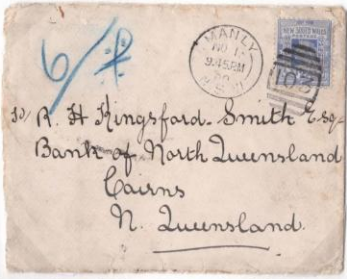 6/
MANLY
NO 1
9.45 AM
90
N.S.W
NEW SOUTH WALES
POSTAGE
103
R. H. Kingsford-Smith Esq
Bank of North Queensland
Cairns
N. Queensland.